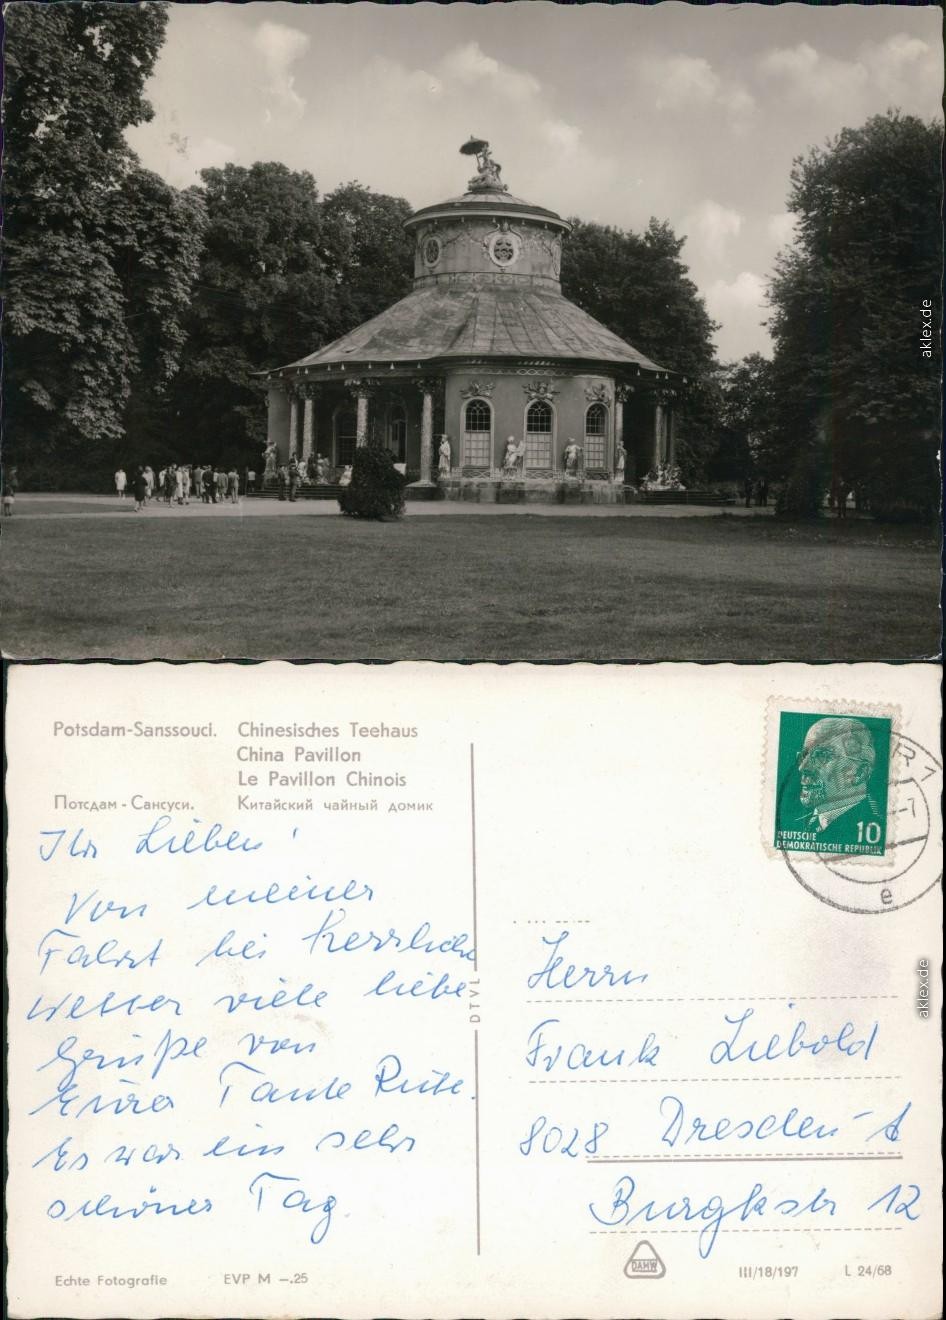 aklex.de
Potsdam-Sanssouci. Chinesisches Teehaus
China Pavillon
Le Pavillon Chinois
Потсдам - Сансуси. Китайский чайный домик
Ihr Lieben!
Von meiner
Fahrt bei herrlichem
Wetter viele liebe
Grüße von
Eurer Tante Rute.
Es war ein sehr
schöner Tag.
Echte Fotografie EVP M –.25
DTVL
10
DEUTSCHE
DEMOKRATISCHE REPUBLIK
e
Herrn
Frank Liebold
8028 Dresden-A
Burgkstr 12
DAMW
III/18/197 L 24/68
aklex.de